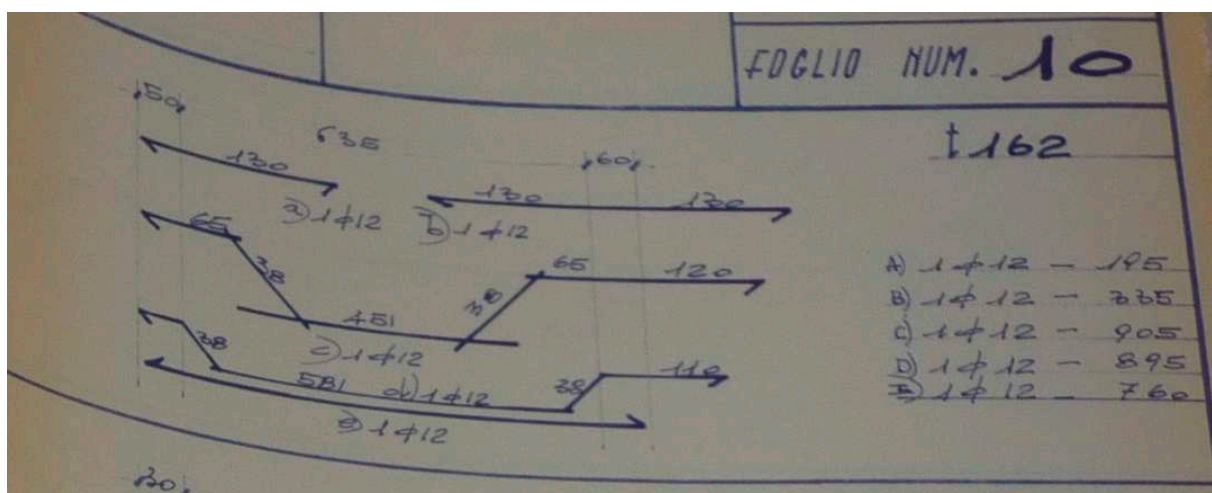 FOGLIO NUM. 10
t 162
50
635
60
130
a) 1 ϕ 12
130 130
b) 1 ϕ 12
65
38
65 120
38
451
c) 1 ϕ 12
38
581 d) 1 ϕ 12
38 110
e) 1 ϕ 12
A) 1 ϕ 12 - 195
B) 1 ϕ 12 - 335
C) 1 ϕ 12 - 905
D) 1 ϕ 12 - 895
E) 1 ϕ 12 - 760
30